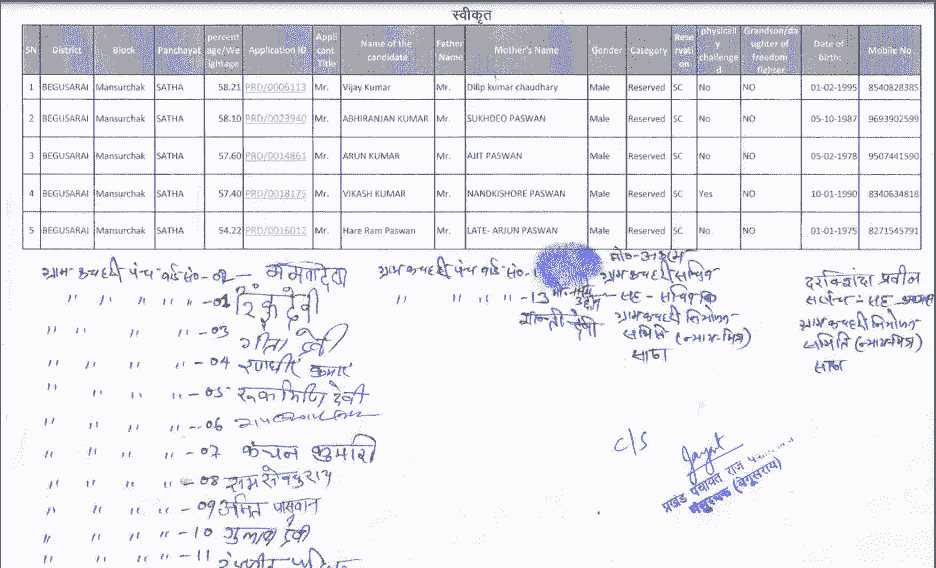 स्वीकृत
SN District Block Panchayat percentage/Weightage Application ID Applicant Title Name of the candidate Father Name Mother's Name Gender Category Reservation physically challenged Grandson/daughter of freedom fighter Date of birth: Mobile No
1 BEGUSARAI Mansurchak SATHA 58.21 PRD/0006113 Mr. Vijay Kumar Mr. Dilip kumar chaudhary Male Reserved SC No NO 01-02-1995 8540828385
2 BEGUSARAI Mansurchak SATHA 58.10 PRD/0023940 Mr. ABHIRANJAN KUMAR Mr. SUKHDEO PASWAN Male Reserved SC No NO 05-10-1987 9693902599
3 BEGUSARAI Mansurchak SATHA 57.60 PRD/0014861 Mr. ARUN KUMAR Mr. AJIT PASWAN Male Reserved SC No NO 05-02-1978 9507441590
4 BEGUSARAI Mansurchak SATHA 57.40 PRD/0018175 Mr. VIKASH KUMAR Mr. NANDKISHORE PASWAN Male Reserved SC Yes NO 10-01-1990 8340634818
5 BEGUSARAI Mansurchak SATHA 54.22 PRD/0016012 Mr. Hare Ram Paswan Mr. LATE- ARJUN PASWAN Male Reserved SC No NO 01-01-1975 8271545791
ग्राम कचहरी पंच वार्ड सं०-02 - ममता देवी ग्राम कचहरी पंच वार्ड सं० ग्राम कचहरी सचिव दरकशिंदा प्रवीन
" " " " -01 रिंकु देवी " " " " -13 सह - सचिव सरपंच - सह -
" " " " -03 गीता देवी शान्ती देवी ग्राम कचहरी नियोजन ग्राम कचहरी नियोजन
समिति (न्याय-मित्र) समिति (न्याय-मित्र)
" " " " -04 कुमार साठा साठा
" " " " -05 रूकमिणि देवी
" " " " -06
" " " " -07 कंचन कुमारी C/S
" " " " -08 रामसेवक राय प्रखंड पंचायत राज
" " " " -09 अमित पासवान (बेगूसराय)
" " " " -10 गुलाब देवी
" " " " -11